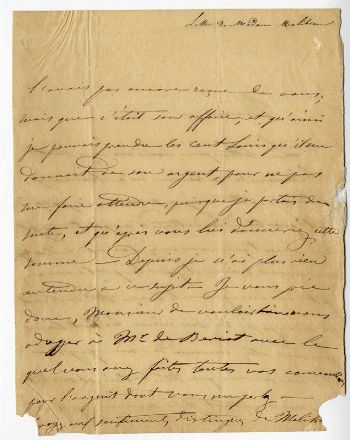 de Madame Malibran
n'avais pas encore reçu de vous,
mais que c'était son affaire, et qu'ainsi
je pouvais prendre les cent Louis qu'il me
donnait de son argent, pour ne pas
me faire attendre, puisque je partais de
suite, et qu'après vous lui donneriez cette
somme — Depuis je n'ai plus rien
entendu à ce sujet. Je vous prie
donc, Monsieur de vouloir bien vous
adresser à Mr. de Beriot avec le
quel vous avez faites toutes vos
pour l'argent dont vous me parlez —
sentiments distingués de Malibran